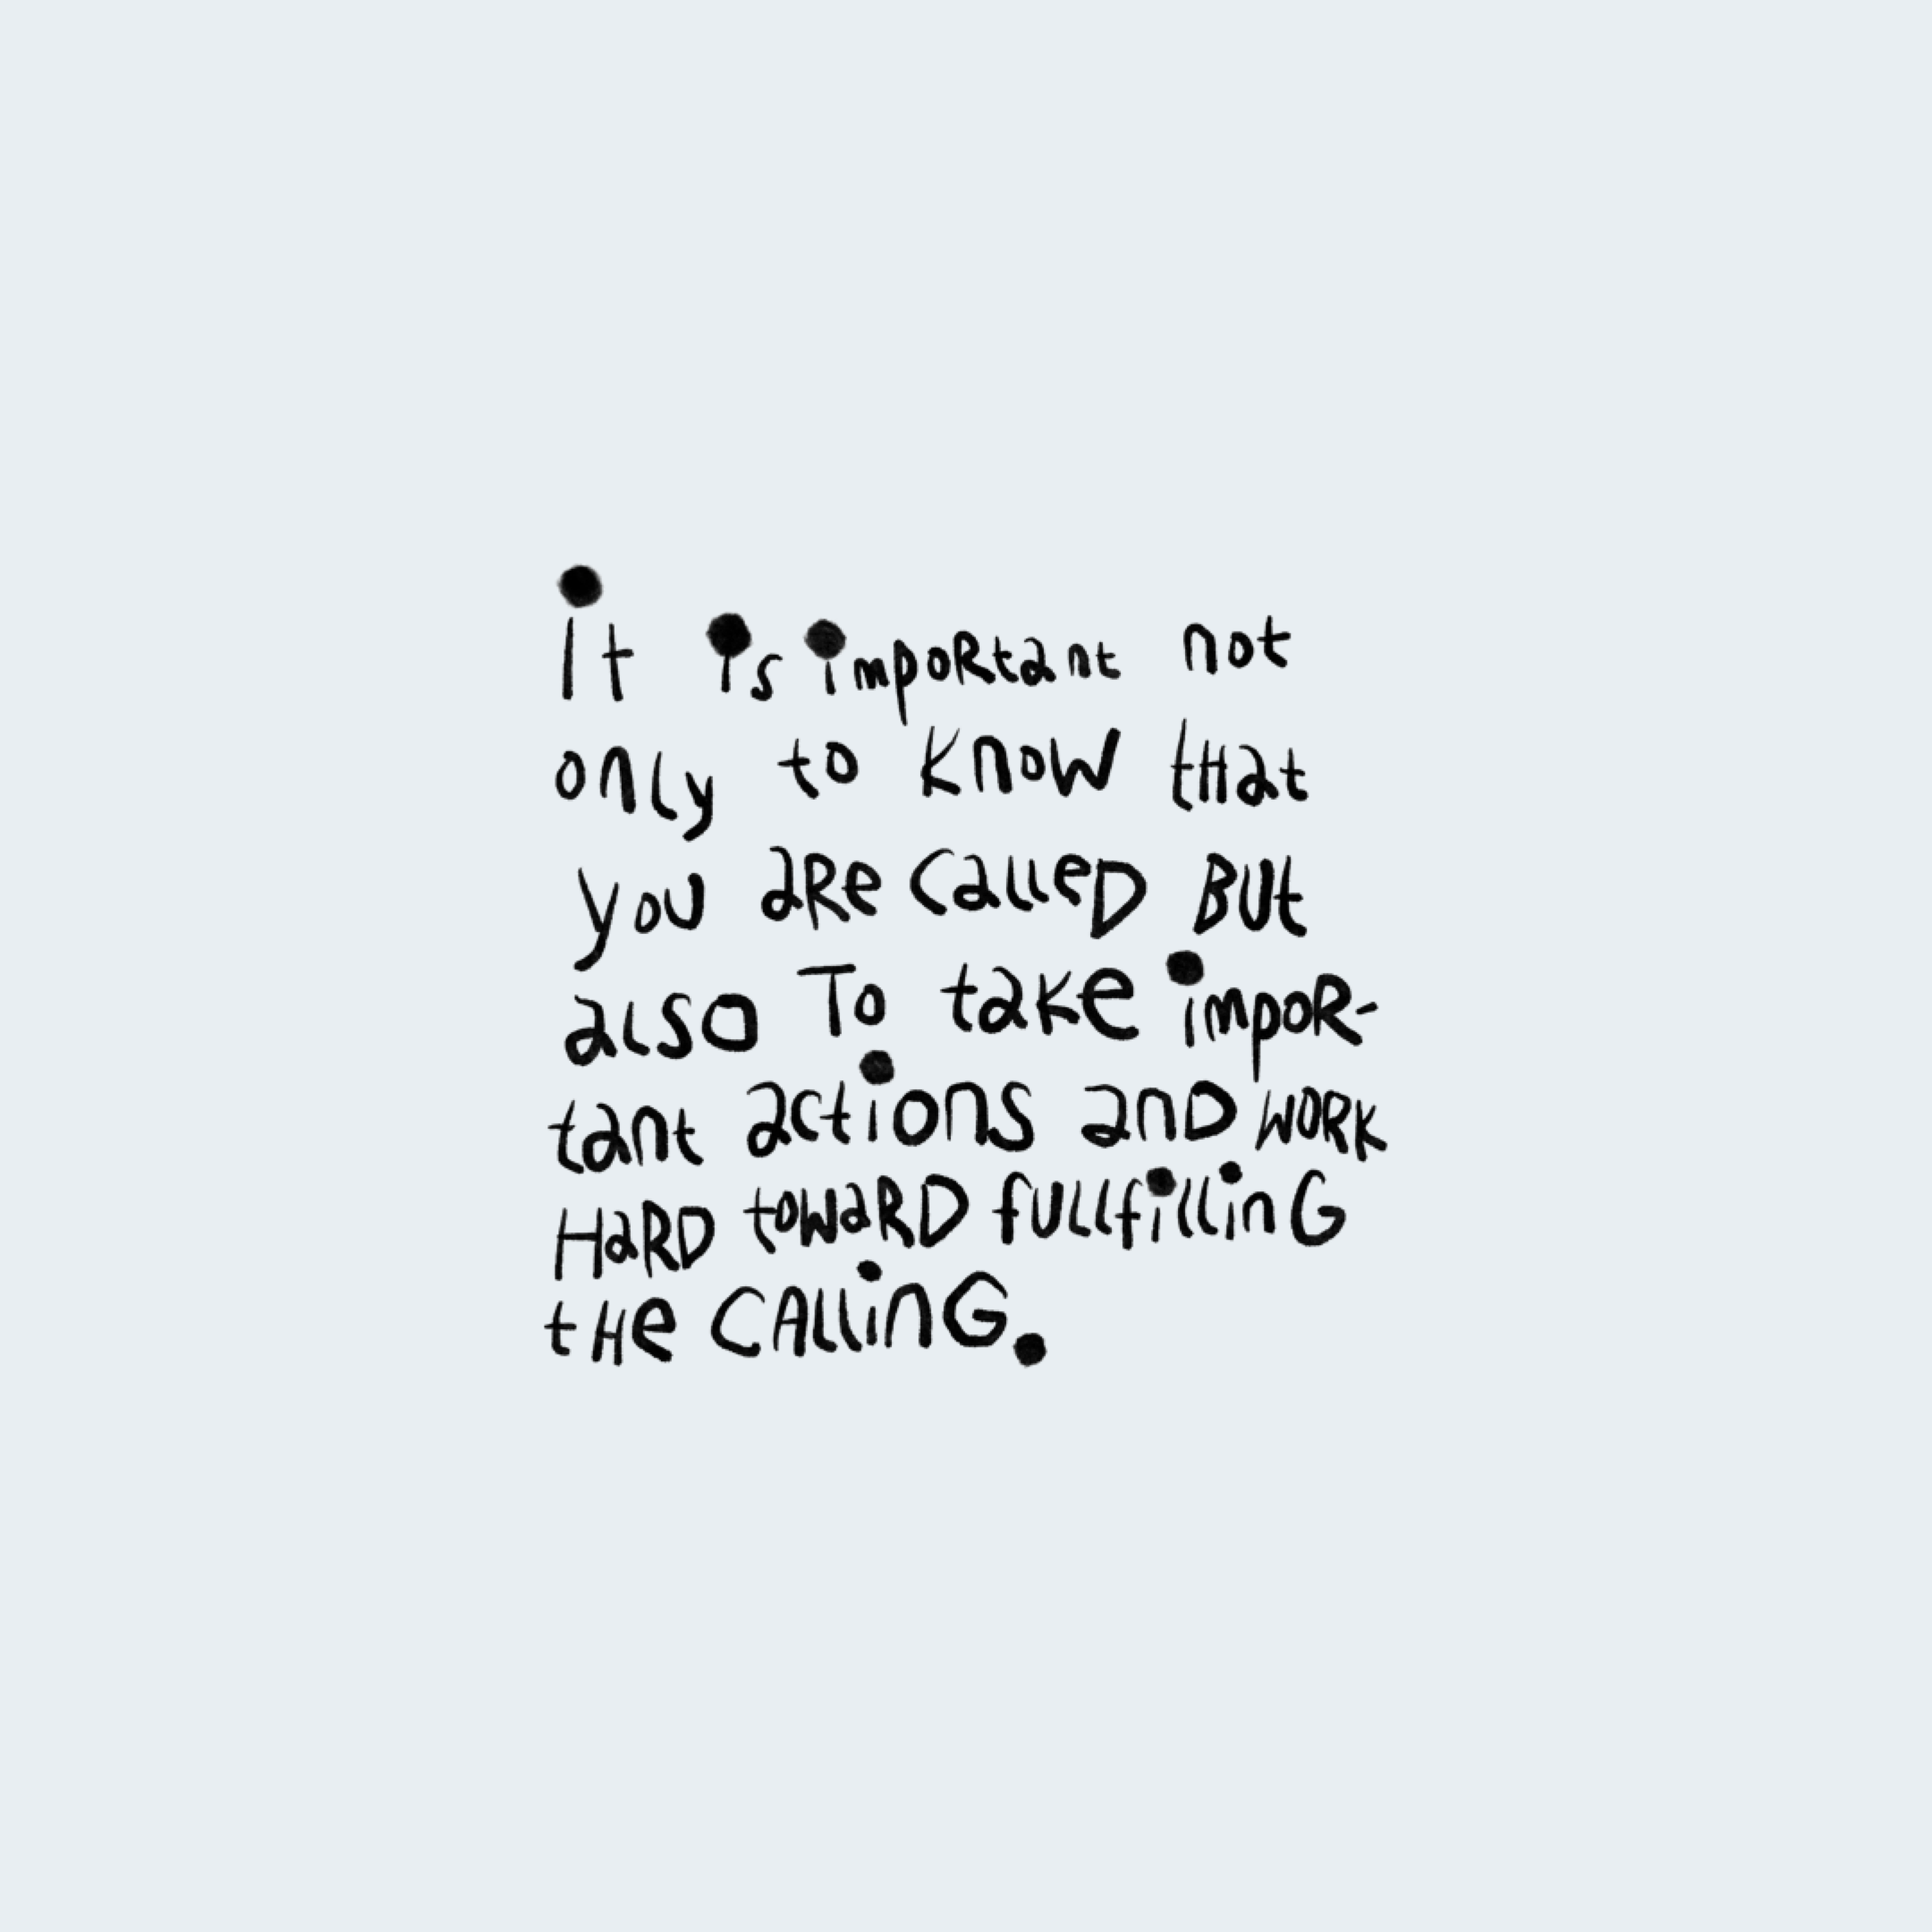 it is impoRtant not
only to know tHat
you aRe calleD But
also To take impoR-
tant actions anD woRk
HaRD towaRD fullfillinG
tHe CAllinG.